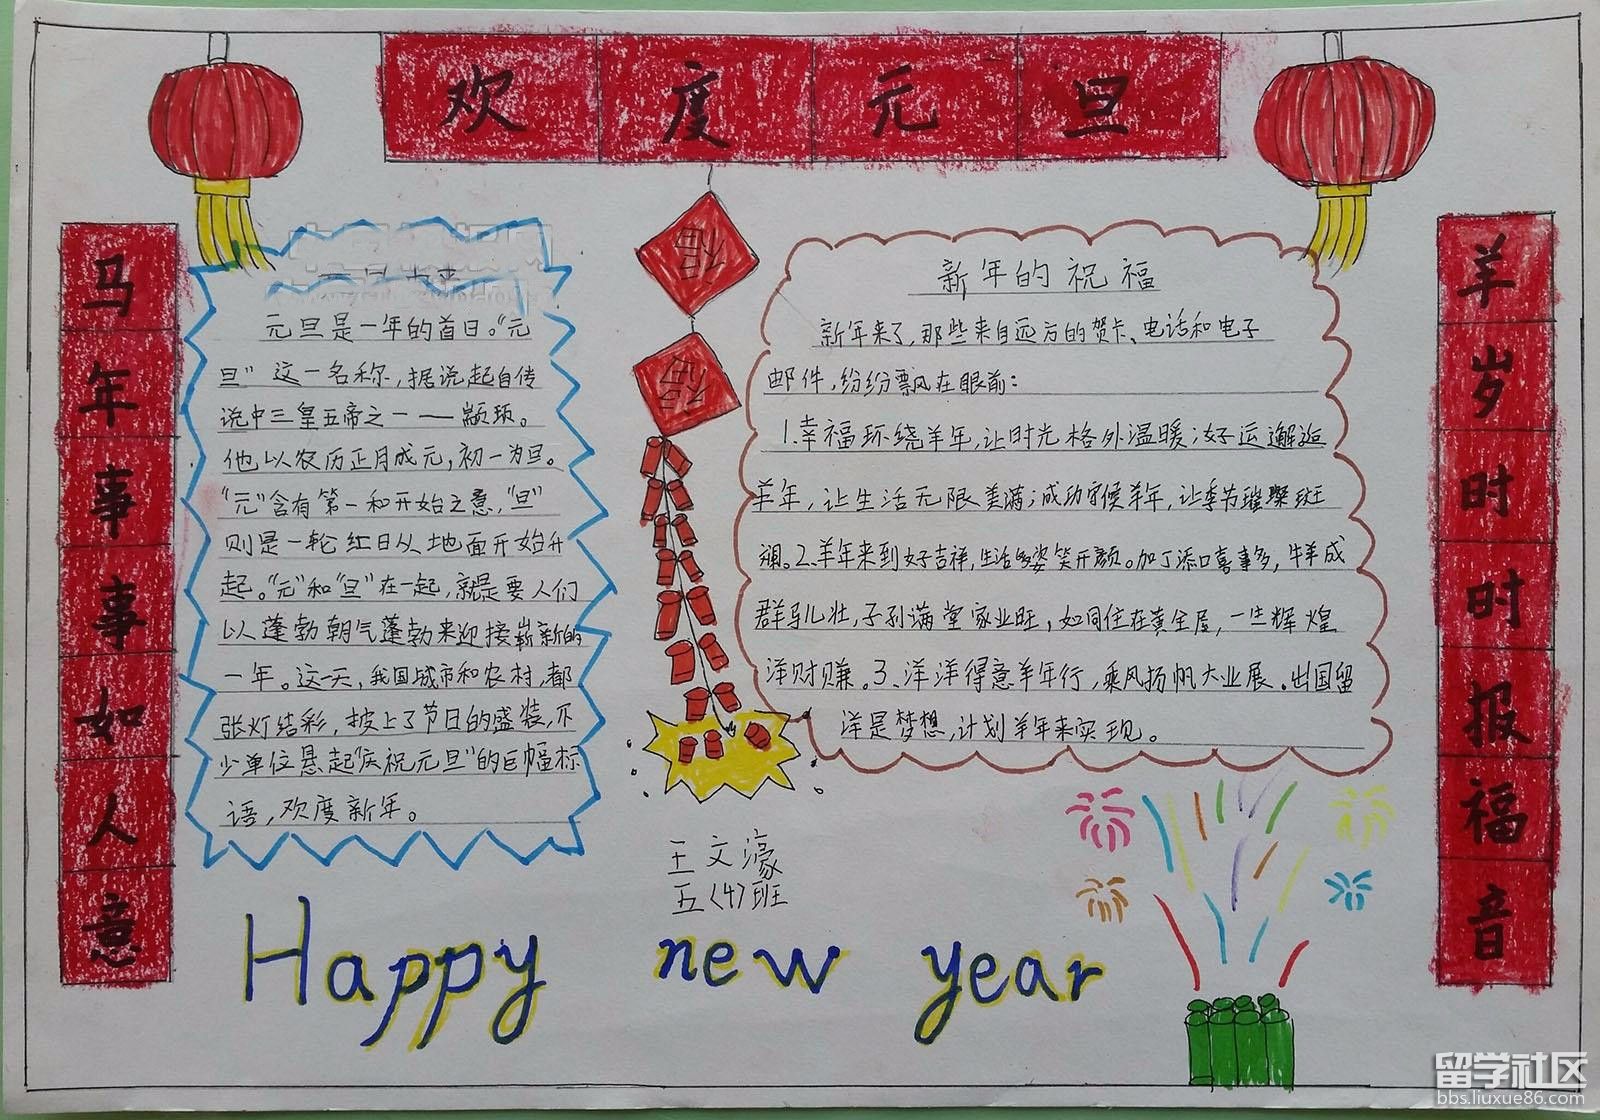 欢度元旦
马年事事如人意
福
福
元旦是一年的首日。“元
旦”这一名称，据说起自传
说中三皇五帝之一——颛顼。
他以农历正月成元，初一为旦。
“元”含有第一和开始之意，“旦”
则是一轮红日从地面开始升
起。“元”和“旦”在一起，就是要人们
以蓬勃朝气蓬勃来迎接崭新的
一年。这一天，我国城市和农村，都
张灯结彩，披上了节日的盛装，不
少单位悬起“庆祝元旦”的巨幅标
语，欢度新年。
新年的祝福
新年来了，那些来自远方的贺卡、电话和电子
邮件，纷纷飘在眼前：
1.幸福环绕羊年，让时光格外温暖；好运邂逅
羊年，让生活无限美满；成功守候羊年，让季节璀璨斑
斓。2、羊年来到好吉祥，生活多姿笑开颜。加丁添口喜事多，牛羊成
群马儿壮，子孙满堂家业旺，如同住在黄金屋，一生辉煌
洋财赚。3、洋洋得意羊年行，乘风扬帆大业展。出国留
洋是梦想，计划羊年来实现。
羊岁时时报福音
王文濠
五〈4〉班
Happy new year
留学社区
bbs.liuxue86.com